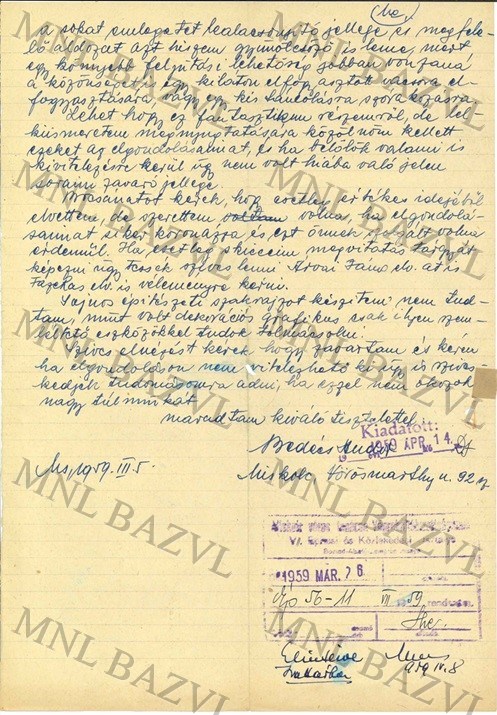 a sokat emlegetett lealacsonyító jellege és megfele-
lő áldozat azt hiszem gyümölcsöző is lenne, mert
egy könnyebb feljutási lehetőség jobban vonzaná
a közönséget is egy kilátón elfogyasztott vacsora el-
fogyasztására, vagy egy kis táncolásra szórakozásra.
Lehet hogy ez fantasztikum részemről, de lel-
kiismeretem megnyugtatására közölnöm kellett
ezeket az elgondolásaimat, és ha belőlük valami is
kivitelezésre kerül úgy nem volt hiába való jelen
soraim zavaró jellege.
Bocsánatot kérek, hogy esetleg értékes idejéből
elvettem, de szerettem volna, ha elgondolá-
saimat siker koronázza és ezt önnek is
Ha esetleg skicceim megvitatás tárgyát
képezné úgy tessék szíves lenni Arvai Jánó elv. at is
Fazekas elv. is véleményre kérni.
Sajnos építészeti szakrajzot készíteni nem tud-
tam, mint volt dekorációs grafikus csak ilyen szem-
léltető eszközökkel tudok tolmácsolni.
Szíves elnézést kérek hogy zavartam és kérem
ha elgondolásom nem vitelezhető ki úgy is szíves-
kedjék tudomásomra adni, ha ezzel nem okozok
nagy túlmunkát
maradtam kiváló tisztelettel
Kiadatott:
1959 ÁPR. 14.
Bedécs
Ms, 1959. III. 5.
Miskolc Vörösmarthy u. 92 sz
V/. Építési és Közlekedési
1959 MÁR. 26
56-11 VII 59
959 IV. 8
MNL BAZVL
MNL BAZVL
MNL BAZVL
MNL BAZVL
MNL BAZVL
MNL BAZVL